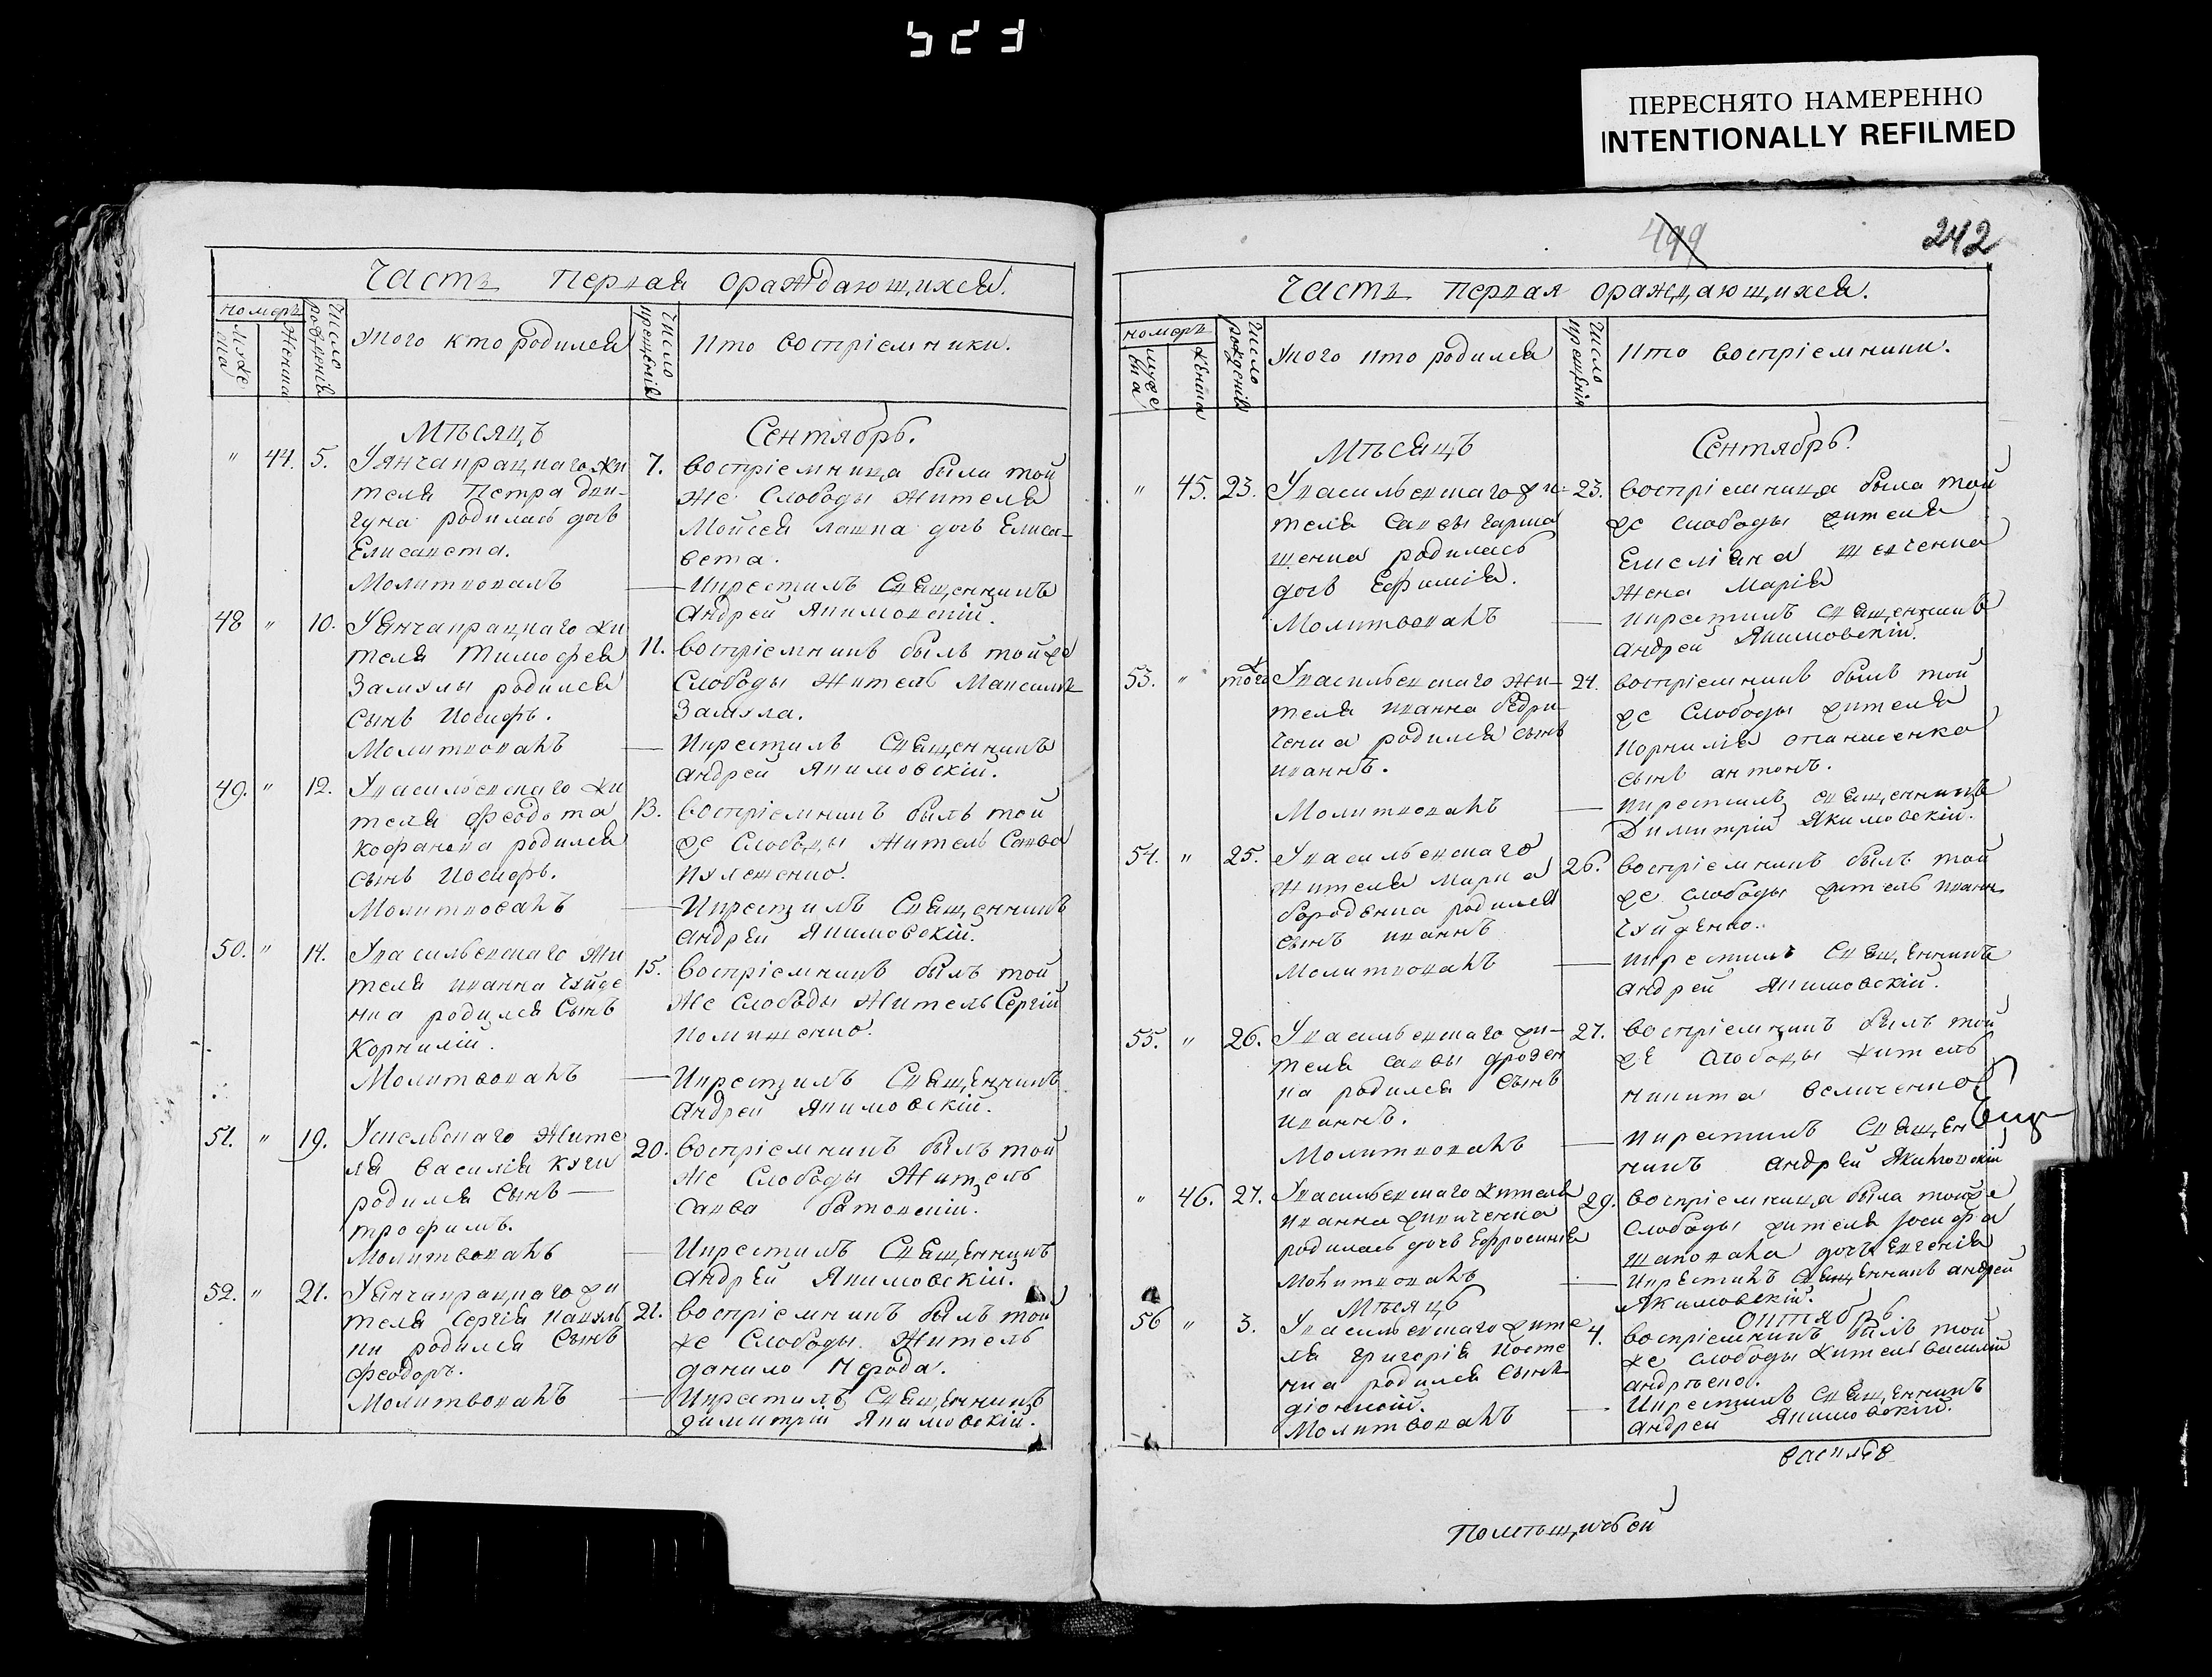 ПЕРЕСНЯТО НАМЕРЕННО
INTENTIONALLY REFILMED
Часть первая ораждающихся.
номеръ
Число рожденія
Женска
Число крещенія
Укого кто родился
Кто воспріемники.
Мѣсяцъ
Сентябрь.
" 44. 5.
Уянчакрацкаго жи
теля Петра
родилась дочь
Елисавета.
Молитвовалъ
7. воспріемница была той
же Слободы жителя
Мойсея дочь Елиса-
вета.
Икрестилъ Священникъ
Андрей Якимовскій.
48 " 10.
Уянчакрацкаго жи
теля Тимофея
Замулы родился
сынъ Иосифъ.
Молитвовалъ
11. воспріемникъ былъ тойже
Слободы житель Максимъ
Замула.
Икрестилъ Священникъ
Андрей Якимовскій.
49. " 12.
Увасильевскаго жи
теля Феодота
родился
сынъ Иосифъ.
Молитвовалъ
13. воспріемникъ былъ той
же Слободы житель Савва
Икрестилъ Священникъ
Андрей Якимовскій.
50. " 14.
Увасильевскаго жи
теля Иванна Чуйде
нка родился сынъ
Корнилій.
Молитвовалъ
15. воспріемникъ былъ той
же Слободы житель Сергій
Икрестилъ Священникъ
Андрей Якимовскій.
51. " 19.
жите
ля Василія
родился сынъ
трофимъ.
Молитвовалъ
20. воспріемникъ былъ той
же Слободы житель
Савва
Икрестилъ Священникъ
Андрей Якимовскій.
52. " 21.
Уянчакрацкаго жи
теля Сергія
родился сынъ
феодоръ.
Молитвовалъ
21. воспріемникъ былъ той
же Слободы житель
данило
Икрестилъ Священникъ
димитрій Якимовскій.
499
242
Часть первая ораждающихся.
номеръ
Число рожденія
Число крещенія
Укого кто родился
Кто воспріемники.
Мѣсяцъ
Сентябрь.
" 45. 23.
Увасильевскаго жи-
теля Саввы
родилась
дочь Ефимія.
Молитвовалъ
23. воспріемница была той
же слободы жителя
Емеліана Шевченка
жена Марія
Икрестилъ Священникъ
Андрей Якимовскій.
53. " того
Увасильевскаго жи-
теля Иванна Бедри-
ченка родился сынъ
Иваннъ.
Молитвовалъ
24. воспріемникъ былъ той
же Слободы жителя
Корнилія опанасенка
сынъ антонъ.
Икрестилъ Священникъ
Димитрій Якимовскій.
54. " 25.
Увасильевскаго
жителя Марка
бороденка родился
сынъ Иваннъ
Молитвовалъ
26. воспріемникъ былъ той
же слободы житель Иваннъ
Чуйденко.
Икрестилъ Священникъ
Андрей Якимовскій.
55. " 26.
Увасильевскаго жи-
теля Саввы
родился сынъ
Иваннъ.
Молитвовалъ
27. воспріемникъ былъ той
же слободы житель
никита величенко
Икрестилъ Священ
никъ Андрей Якимовскій
" 46. 27.
Увасильевскаго жителя
Иванна
родилась дочь Ефросинія
Молитвовалъ
29. воспріемница была тойже
Слободы жителя Іосифа
шаповала дочь Евгенія
Икрестилъ Священникъ Андрей
Якимовскій.
Мѣсяцъ
Октябрь.
56 " 3.
Увасильевскаго жите
ля Григорія Косте
нка родился сынъ
діонисій.
Молитвовалъ
4. воспріемникъ былъ той
же слободы житель василій
андрѣенко.
Икрестилъ Священникъ
Андрей Якимовскій.
Помѣщичьей